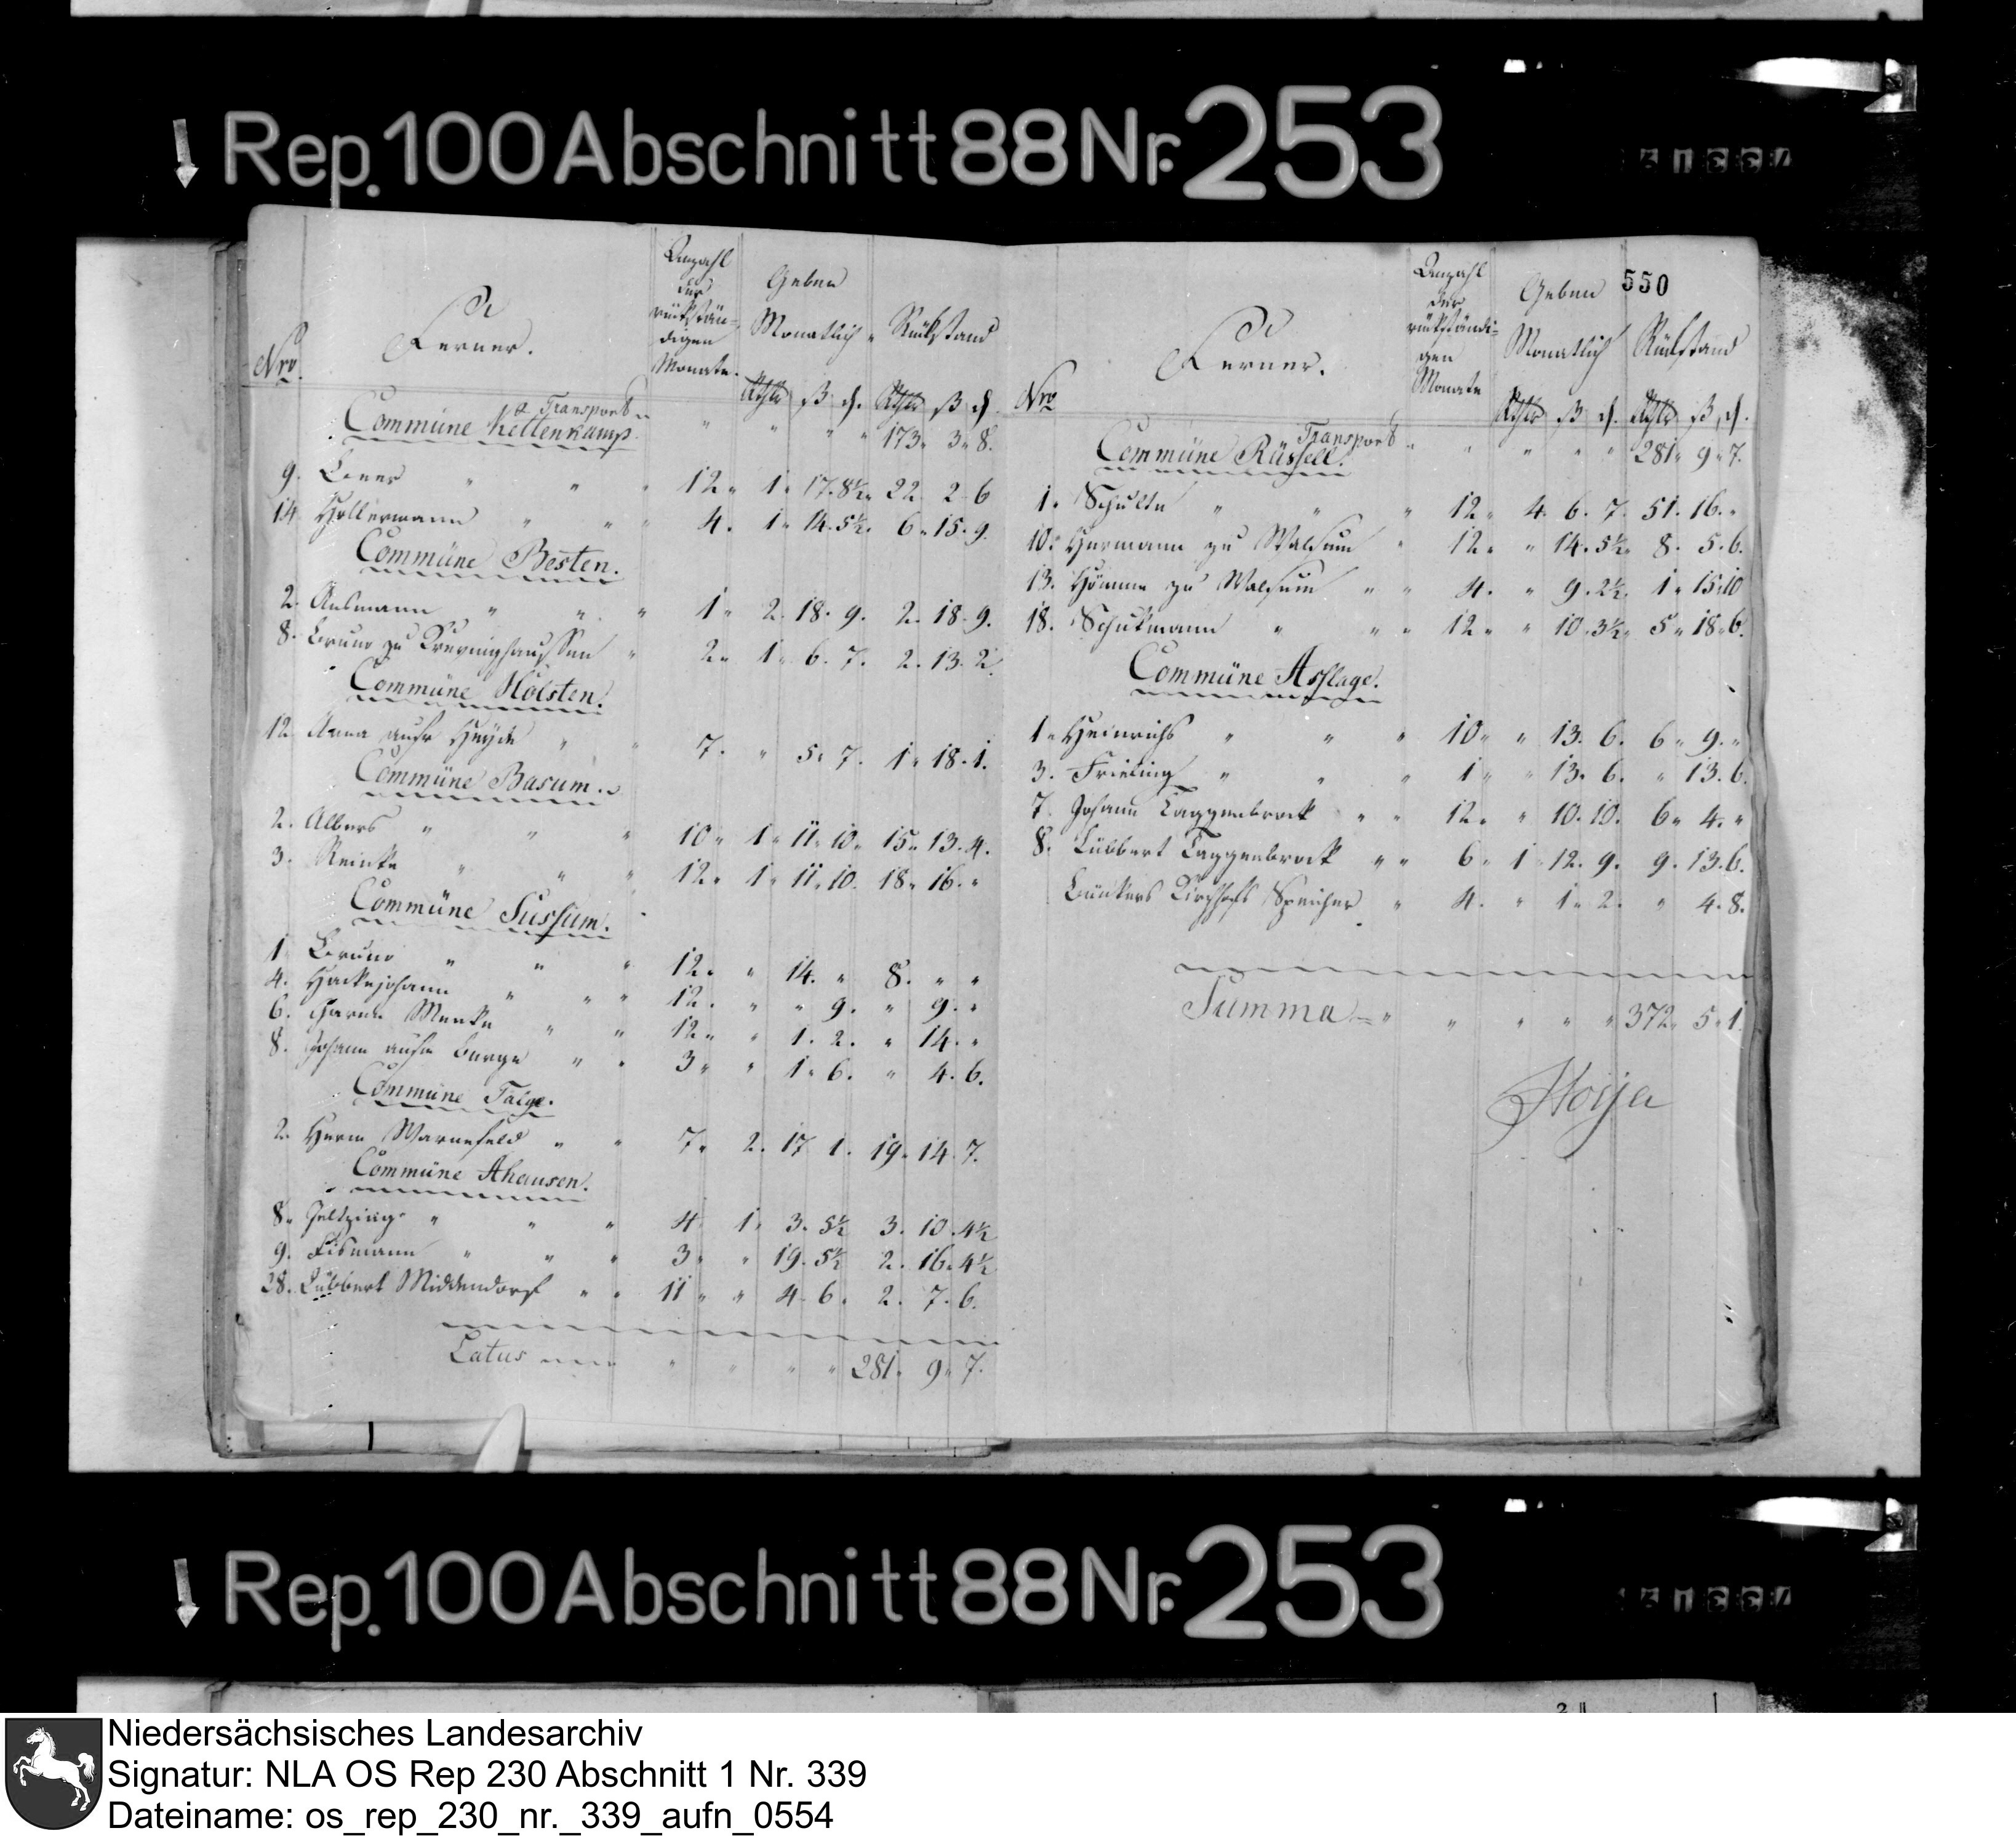 Rep. 100 Abschnitt 88 Nr. 253
Nro. Ferner. Anzahl der rückstän- digen Monate. Geben Monatlich Rückstand
Rthlr ß d. Rthlr ß d.
Transport
Commüne Kettenkamp. " " " " 173. 3. 8.
9. " " " 12. 1. 17. 8½. 22. 2. 6
14. Hollermann " " " 4. 1. 14. 5½. 6. 15. 9.
Commüne Besten.
2. Ausmann " " " 1. 2. 18. 9. 2. 18. 9.
8. Bruns zu " 2. 1. 6. 7. 2. 13. 2.
Commüne Holsten.
12. Anna aufr Heyde " " 7. " 5. 7. 1. 18. 1.
Commüne Basum.
2. Albers " " " 10. 1. 11. 10. 15. 13. 4.
3. Reinke " " " 12. 1. 11. 10. 18. 16. "
Commüne Sussum.
1. Bruns " " " 12. " 14. " 8. " "
4. Hackejohann " " " 12. " " 9. " 9. "
6. Harm Menke " " 12. " 1. 2. " 14. "
8. Johann aufm Berge " " 3. " 1. 6. " 4. 6.
Commüne Talge.
2. Herm Warnefeld " " 7. 2. 17. 1. 19. 14. 7.
Commüne Ahausen.
8. " " " 4. 1. 3. 5½ 3. 10. 4½
9. Eismann " " " 3. " 19. 5½ 2. 16. 4½
28. Lübbert Middendorf " " 11. " 4. 6. 2. 7. 6.
Latus " " " " 281. 9. 7.
550
Nro Ferner. Anzahl der rückständi- gen Monate Geben Monatlich Rückstand
Rthlr ß d. Rthlr ß d.
Transport
Commüne Rüssell. " " " " " 281. 9. 7.
1. Schulte " " " 12. 4. 6. 7. 51. 16. "
10. Hermann zu Walsum " 12. " 14. 5½. 8. 5. 6.
13. Hömme zu Walsum " " 4. " 9. 2½. 1. 15. 10
18. Schukmann " " " 12. " 10. 3½. 5. 18. 6.
Commüne Asslage.
1. Heinrichs " " " 10. " 13. 6. 6. 9. "
3. Frieling " " " 1. " 13. 6. " 13. 6.
7. Johann Taggenbrock " " 12. " 10. 10. 6. 4. "
8. Lübbert Taggenbrock " " 6. 1. 12. 9. 9. 13. 6.
Bünkers Kirchhofs Speicher " 4. " 1. 2. " 4. 8.
Summa " " " " " 372. 5. 1.
Hoija
Rep. 100 Abschnitt 88 Nr. 253
Niedersächsisches Landesarchiv
Signatur: NLA OS Rep 230 Abschnitt 1 Nr. 339
Dateiname: os_rep_230_nr._339_aufn_0554